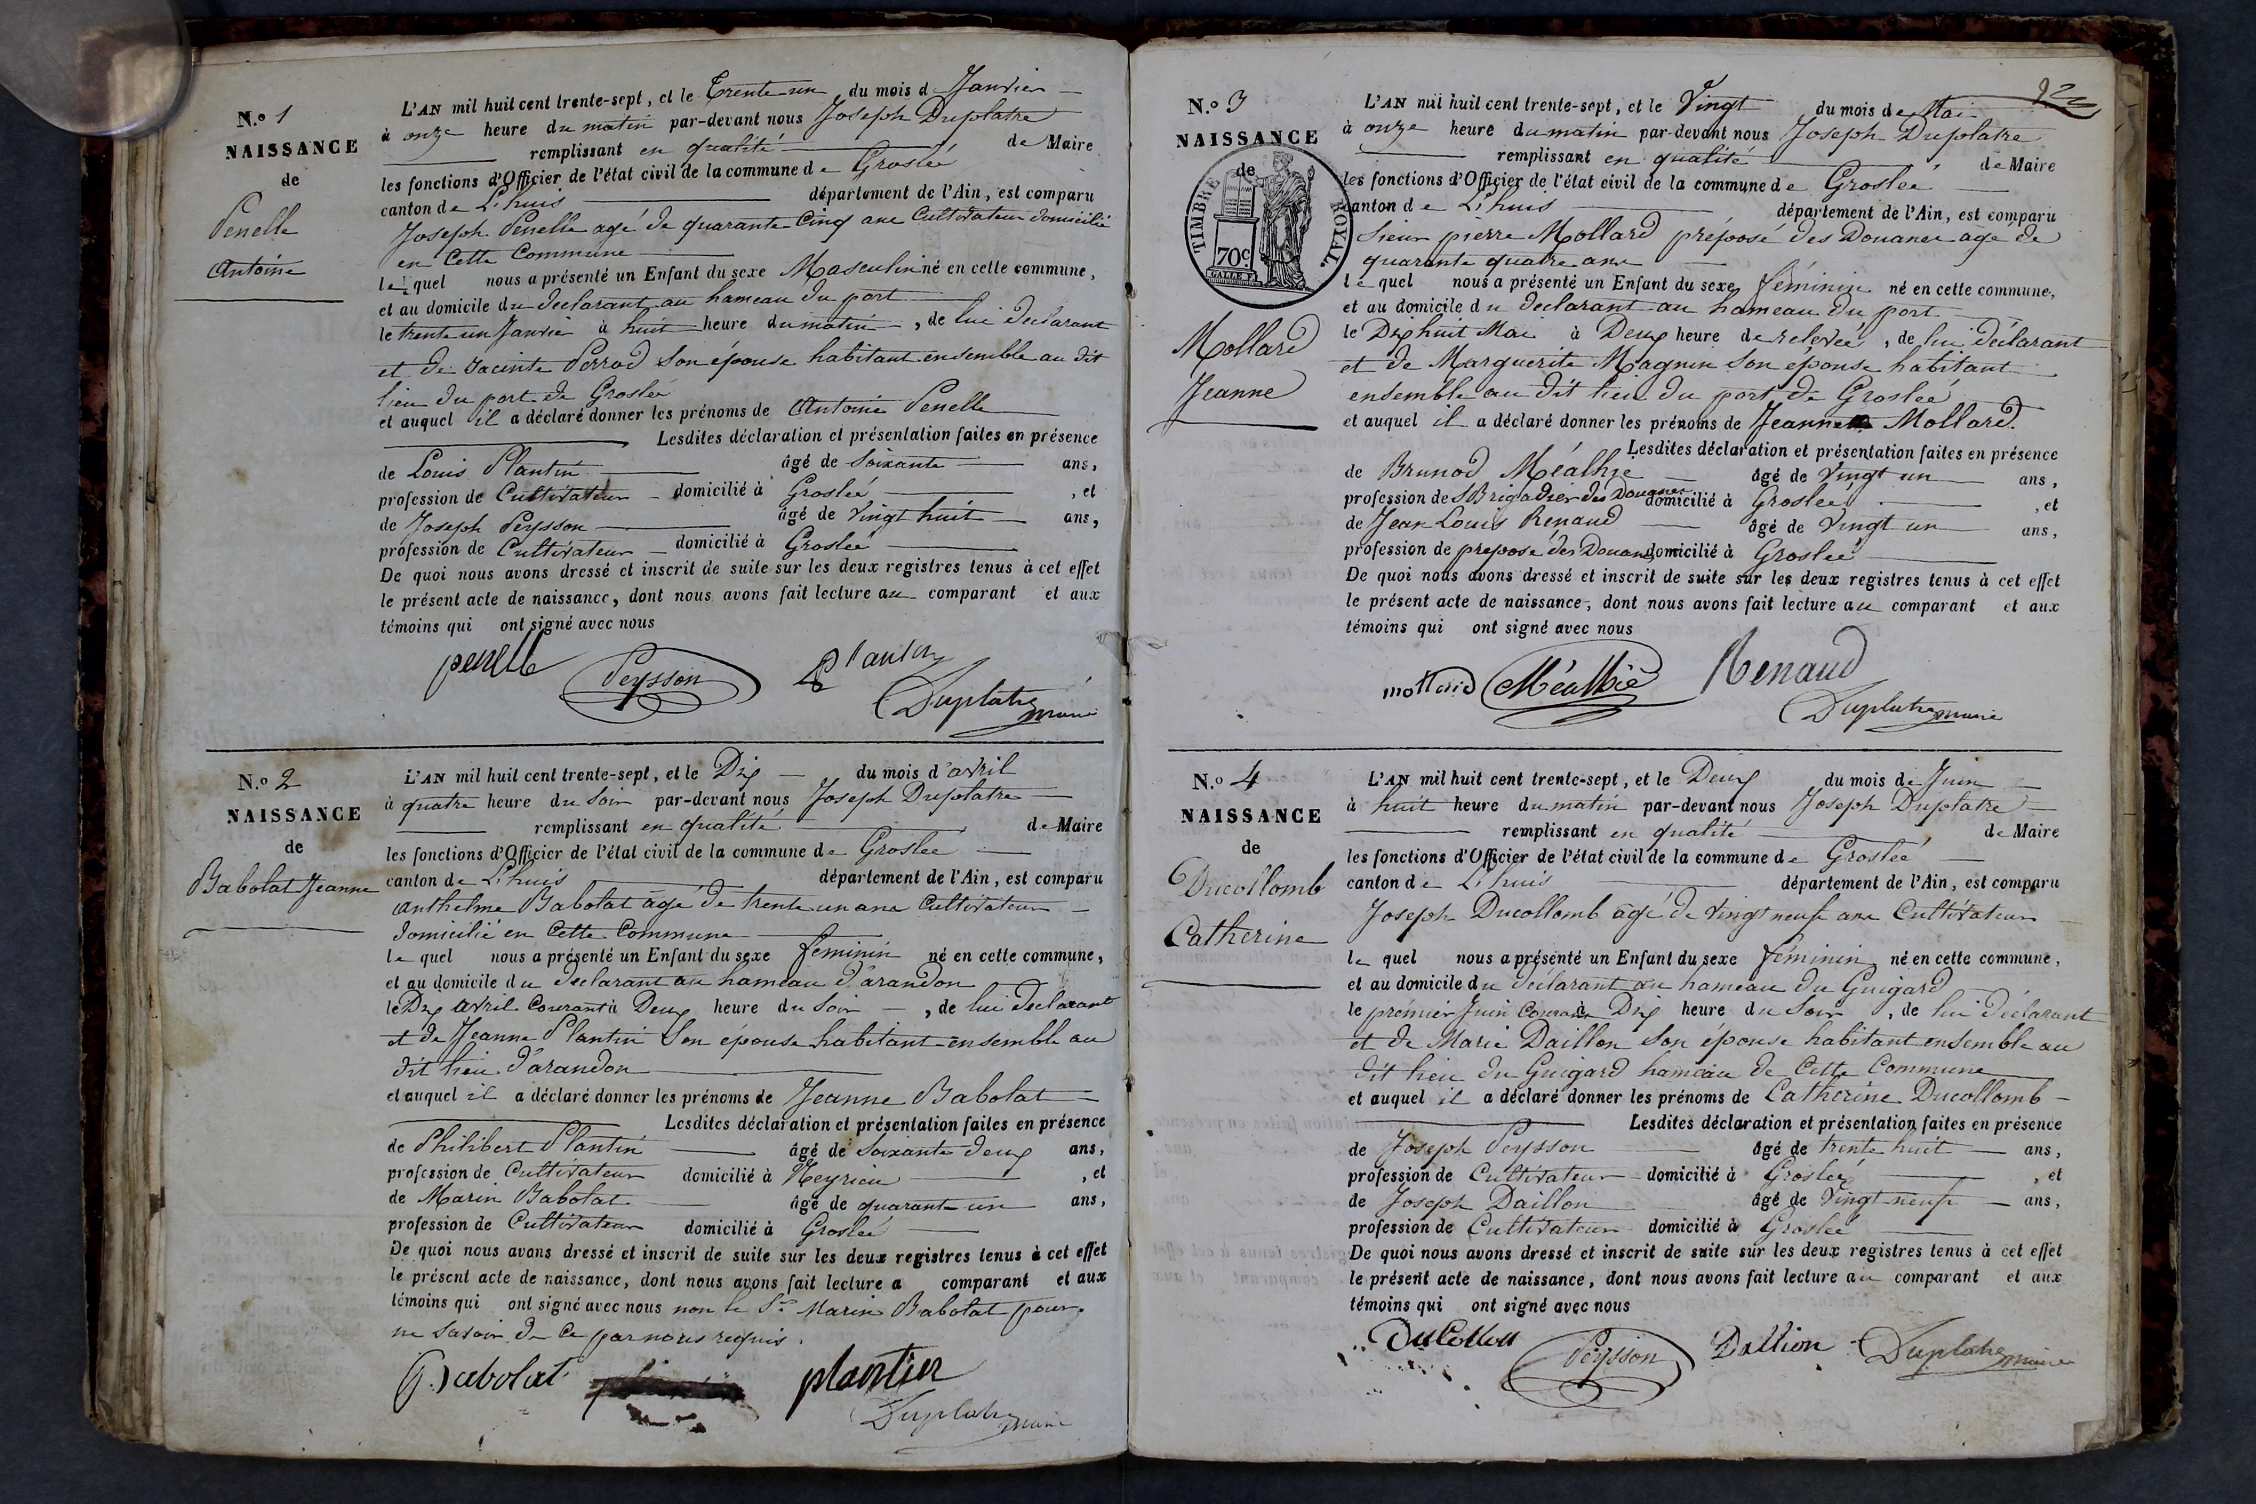 N.o 1
NAISSANCE
de
Penelle
Antoine
L'AN mil huit cent trente-sept, et le Trente un du mois d Janvier
à onze heure du matin par-devant nous Joseph Duplatre
remplissant en qualité de Maire
les fonctions d'Officier de l'état civil de la commune de Groslée
canton de L'huis département de l'Ain, est comparu
Joseph Penelle agé de quarante cinq ans Cultivateur domicilié
en Cette Commune
lequel nous a présenté un Enfant du sexe Masculin né en cette commune,
et au domicile du declarant au hameau du port
le trente un Janvier à huit heure du matin, de lui declarant
et de Jacinte Perrod son épouse habitant ensemble au dit
lieu du port de Groslée
et auquel il a déclaré donner les prénoms de Antoine Penelle
Lesdites déclaration et présentation faites en présence
de Louis Plantin âgé de Soixante ans,
profession de Cultivateur domicilié à Groslée, et
de Joseph Peysson âgé de Vingt huit ans,
profession de Cultivateur domicilié à Groslée
De quoi nous avons dressé et inscrit de suite sur les deux registres tenus à cet effet
le présent acte de naissance, dont nous avons fait lecture au comparant et aux
témoins qui ont signé avec nous
penelle Peysson Plantin
Duplatre maire
N.o 2
NAISSANCE
de
Babolat Jeanne
L'AN mil huit cent trente-sept, et le Dix du mois d'avril
à quatre heure du Soir par-devant nous Joseph Duplatre
remplissant en qualité de Maire
les fonctions d'Officier de l'état civil de la commune de Groslée
canton de L'huis département de l'Ain, est comparu
Anthelme Babolat âgé de trente un ans Cultivateur
domicilié en Cette Commune
le quel nous a présenté un Enfant du sexe féminin né en cette commune,
et au domicile du declarant au hameau d'arandon
le Dix avril Courant à Deux heure du Soir, de lui declarant
et de Jeanne Plantin Son épouse habitant ensemble au
dit lieu d'arandon
et auquel il a déclaré donner les prénoms de Jeanne Babolat
Lesdites déclaration et présentation faites en présence
de Philibert Plantin âgé de Soixante deux ans,
profession de Cultivateur domicilié à Meyrieu, et
de Marin Babolat âgé de quarante un ans,
profession de Cultivateur domicilié à Groslée
De quoi nous avons dressé et inscrit de suite sur les deux registres tenus à cet effet
le présent acte de naissance, dont nous avons fait lecture a comparant et aux
témoins qui ont signé avec nous non le Sr Marin Babolat pour
ne Savoir de Ce par nous requis.
Babolat plantin
Duplatre maire
22
N.o 3
NAISSANCE
de
TIMBRE ROYAL.
70c
Mollard
Jeanne
L'AN mil huit cent trente-sept, et le Vingt du mois de Mai
à onze heure du matin par-devant nous Joseph Duplatre
remplissant en qualité de Maire
les fonctions d'Officier de l'état civil de la commune de Groslée
canton de L'huis département de l'Ain, est comparu
Sieur pierre Mollard préposé des Douanes âgé de
quarante quatre ans
le quel nous a présenté un Enfant du sexe féminin né en cette commune,
et au domicile du declarant au hameau du port
le Dix huit Mai à Deux heure de relevée, de lui déclarant
et de Marguerite Magnin son épouse habitant
ensemble au dit lieu du port de Groslée
et auquel il a déclaré donner les prénoms de Jeanne Mollard.
Lesdites déclaration et présentation faites en présence
de Brunod Méalhie âgé de Vingt un ans,
profession de S Brigadier des Douanes domicilié à Groslée, et
de Jean Louis Renaud âgé de Vingt un ans,
profession de preposé des Douanes domicilié à Groslée
De quoi nous avons dressé et inscrit de suite sur les deux registres tenus à cet effet
le présent acte de naissance, dont nous avons fait lecture au comparant et aux
témoins qui ont signé avec nous
mollard Méalhie Renaud
Duplatre maire
N.o 4
NAISSANCE
de
Ducollomb
Catherine
L'AN mil huit cent trente-sept, et le Deux du mois de Juin
à huit heure du matin par-devant nous Joseph Duplatre
remplissant en qualité de Maire
les fonctions d'Officier de l'état civil de la commune de Groslée
canton de L'huis département de l'Ain, est comparu
Joseph Ducollomb âgé de vingt neuf ans Cultivateur
le quel nous a présenté un Enfant du sexe féminin né en cette commune,
et au domicile du déclarant au hameau du Guigard
le prémier Juin Courant à Dix heure du Soir, de lui déclarant
et de Marie Daillon son épouse habitant ensemble au
dit lieu du Guigard hameau de Cette Commune
et auquel il a déclaré donner les prénoms de Catherine Ducollomb
Lesdites déclaration et présentation faites en présence
de Joseph Peysson âgé de trente huit ans,
profession de Cultivateur domicilié à Groslée, et
de Joseph Daillon âgé de Vingt neuf ans,
profession de Cultivateur domicilié à Groslée
De quoi nous avons dressé et inscrit de suite sur les deux registres tenus à cet effet
le présent acte de naissance, dont nous avons fait lecture au comparant et aux
témoins qui ont signé avec nous
Peysson Dallion Duplatre maire